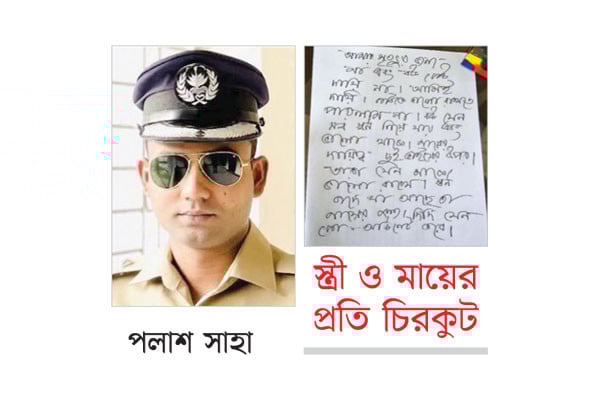 আমার মৃত্যুর জন্য
মা এবং বউ কেউ
দায়ী না। আমিই
দায়ী। কাউকে ভালো রাখতে
পারলাম না। বউ যেন
সব স্বর্ণ নিয়ে যায় এবং
ভালো থাকে। মায়ের
দায়িত্ব দুই ভাইয়ের উপর।
তারা যেন মাকে
ভালো রাখে। স্বর্ণ
বাদে যা আছে তা
মায়ের জন্য। দিদি যেন
কো-অর্ডিনেট করে।
স্ত্রী ও মায়ের
প্রতি চিরকুট
পলাশ সাহা